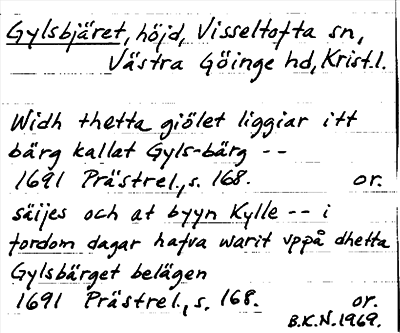 Gylsbjäret, höjd, Visseltofta sn,
Västra Göinge hd, Krist.l.
Widh thetta giölet liggiar itt
bärg kallat Gyls-bärg --
1691 Prästrel., s. 168. or.
säijes och at byyn Kylle -- i
fordom dagar hafva warit vppå dhetta
Gylsbärget belägen
1691 Prästrel., s. 168. or.
B.K.N. 1969.